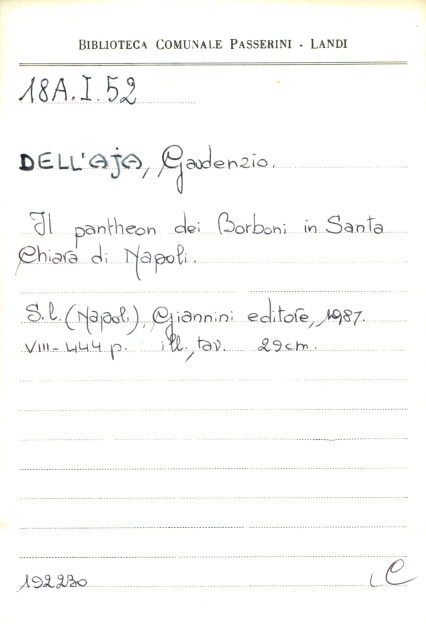 BIBLIOTECA COMUNALE PASSERINI - LANDI
18A.I.52
DELL'AJA, Gaudenzio.
Il pantheon dei Borboni in Santa
Chiara di Napoli.
S.l. (Napoli), Giannini editore, 1987.
VIII-444 p. ill., tav. 29cm.
192230